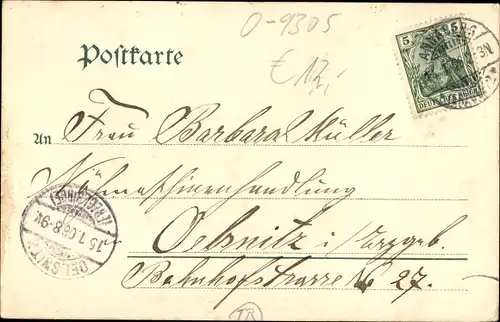 O-9305
Postkarte
€ 12,-
5
ANNABERG
DEUTSCHES REICH
An Frau Barbara Müller
Nähmaschinenhandlung
Oelsnitz i/Erzgeb.
Bahnhofstrasse No 27.
(ERZGEBIRGE)
15.1.06.8-9V.
OELSNITZ